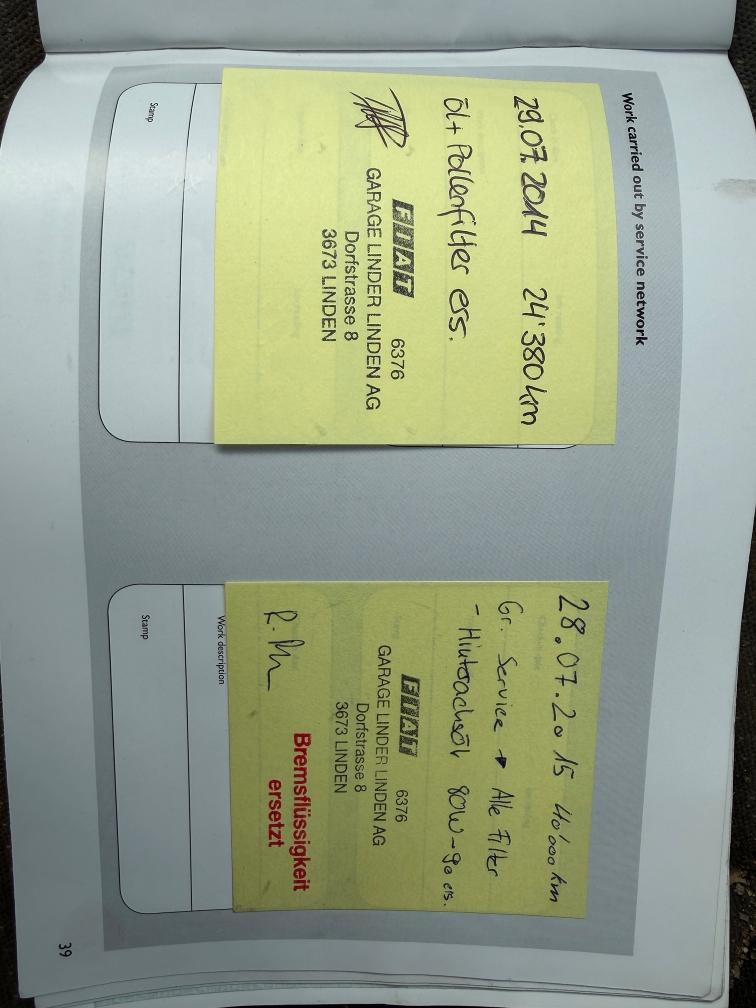 Work carried out by service network
29.07.2014 24'380 km
Öl + Pollenfilter ers.
FIAT 6376
GARAGE LINDER LINDEN AG
Dorfstrasse 8
3673 LINDEN
Stamp
28.07.2015 40'000 km
Gr. Service → Alle Filter
- Hinterachsöl 80W-90 ers.
FIAT 6376
GARAGE LINDER LINDEN AG
Dorfstrasse 8
3673 LINDEN
Bremsflüssigkeit
ersetzt
Work description
Stamp
39